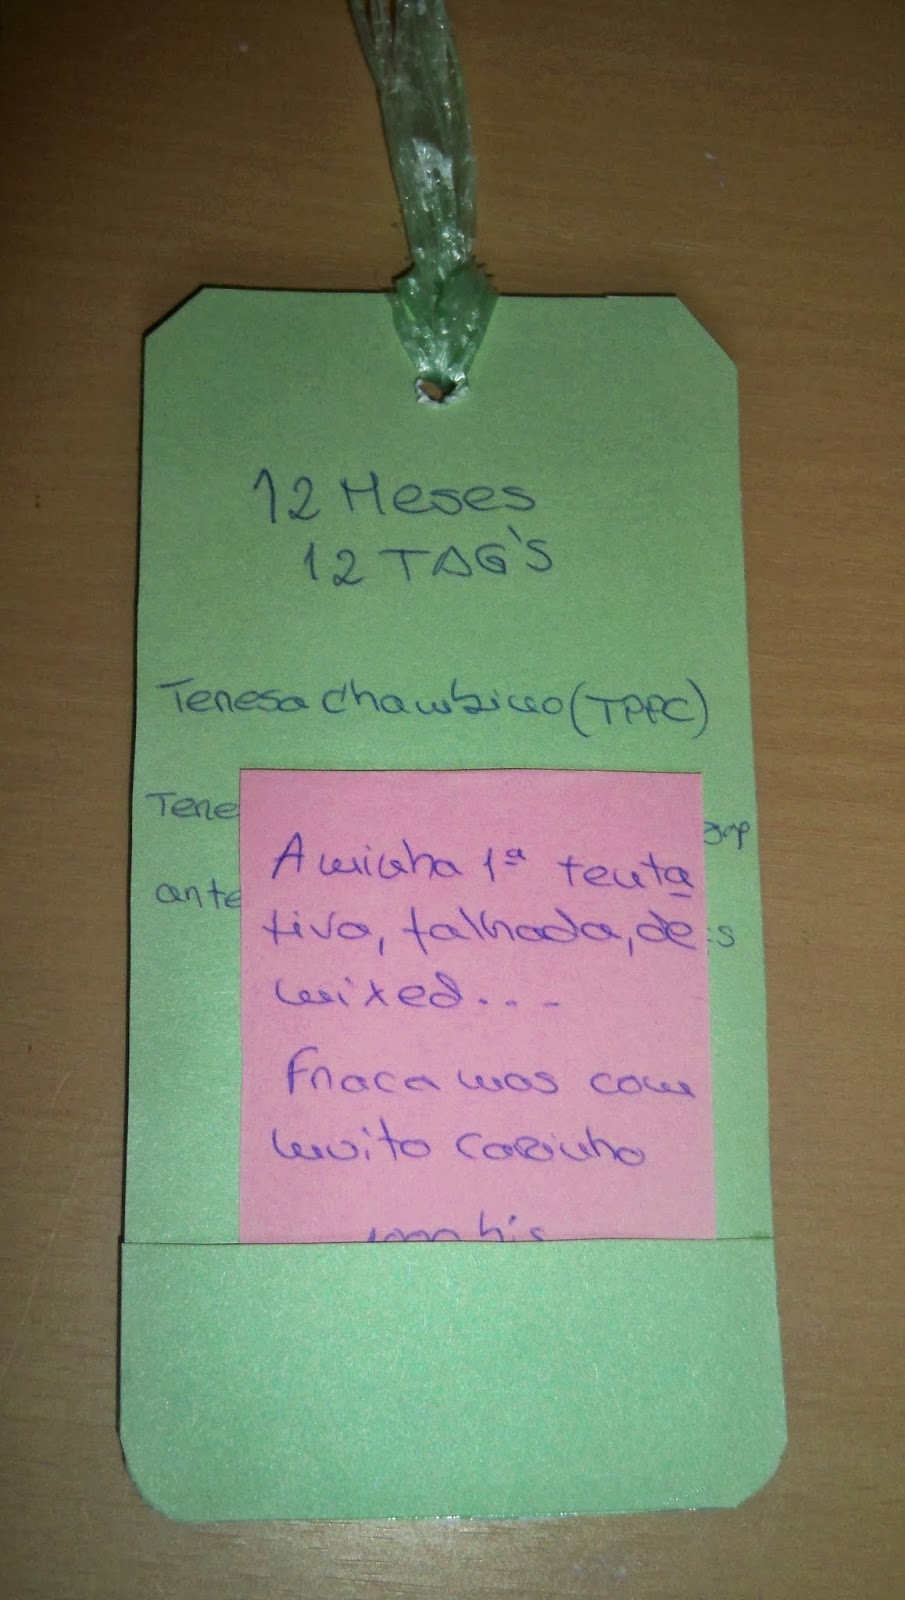 12 Meses
12 TAG'S
Teresa Chambino (TPPC)
Tere
ante
A minha 1ª tenta
tiva, falhada, de
mixed...
Fraca mas com
muito carinho